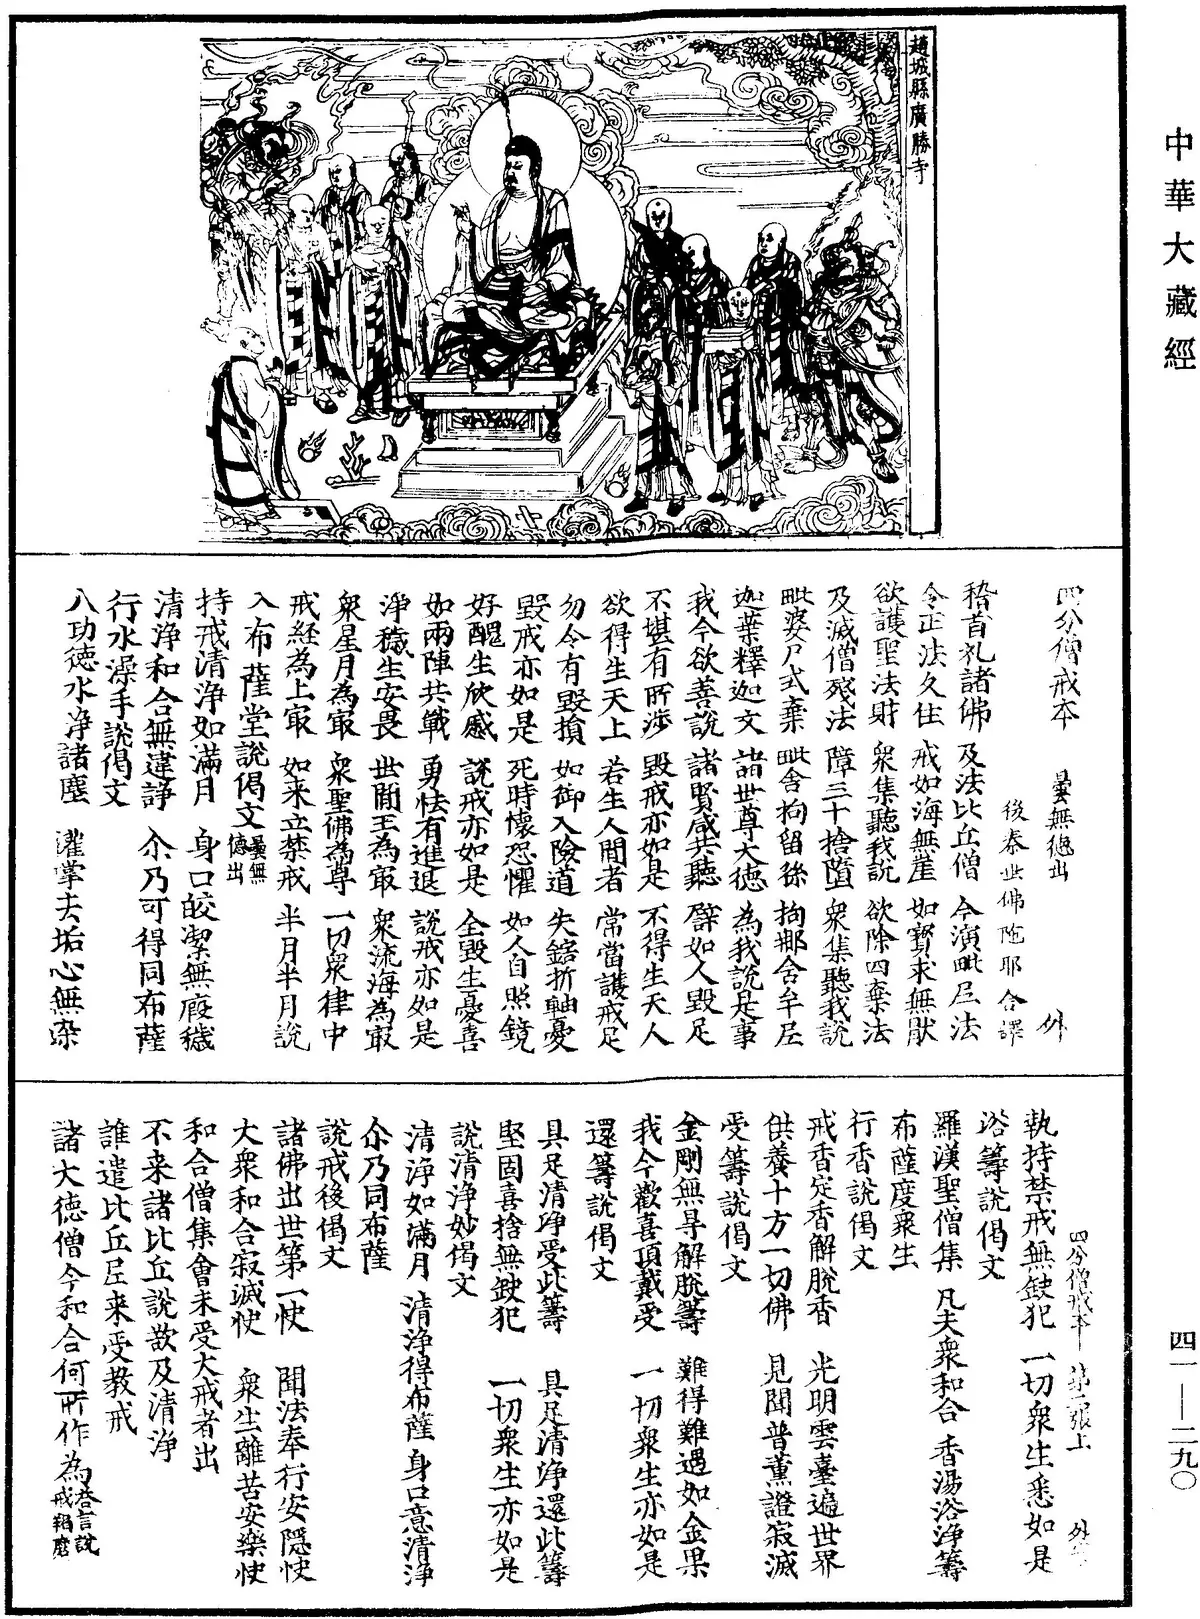 中華大藏經
四一—二九〇
趙城縣廣勝寺
四分僧戒本 曇無德出 外
後秦世佛陁耶舍譯
稽首礼諸佛 及法比丘僧 今演毗尼法
令正法久住 戒如海無崖 如寳求無猒
欲護聖法財 衆集聽我說 欲除四棄法
及滅僧殘法 障三十捨墮 衆集聽我說
毗婆尸式棄 毗舍拘留孫 拘那舍牟尼
迦葉釋迦文 諸世尊大德 為我說是事
我今欲善說 諸賢咸共聽 譬如人毀足
不堪有所涉 毀戒亦如是 不得生天人
欲得生天上 若生人間者 常當護戒足
勿令有毀損 如御入險道 失鎋折軸憂
毀戒亦如是 死時懷恐懼 如人自照鏡
好醜生欣慼 說戒亦如是 全毀生憂喜
如兩陣共戰 勇怯有進退 說戒亦如是
淨穢生安畏 世間王為㝡 衆流海為㝡
衆星月為㝡 衆聖佛為尊 一切衆律中
戒經為上㝡 如来立禁戒 半月半月說
入布薩堂說偈文曇無德出
持戒清淨如滿月 身口皎潔無瑕穢
清淨和合無違諍 尒乃可得同布薩
行水澡手說偈文
八功德水淨諸塵 灌掌去垢心無染
四分僧戒本 第二張上 外
執持禁戒無缺犯 一切衆生悉如是
浴籌說偈文
羅漢聖僧集 凡夫衆和合 香湯浴淨籌
布薩度衆生
行香說偈文
戒香定香解脫香 光明雲臺遍世界
供養十方一切佛 見聞普薰證寂滅
受籌說偈文
金剛無㝵解脫籌 難得難遇如金果
我今歡喜頂戴受 一切衆生亦如是
還籌說偈文
具足清淨受此籌 具足清淨還此籌
堅固喜捨無缺犯 一切衆生亦如是
說清淨妙偈文
清淨如滿月 清淨得布薩 身口意清淨
尒乃同布薩
說戒後偈文
諸佛出世第一快 聞法奉行安隱快
大衆和合寂滅快 衆生離苦安樂快
和合僧集會未受大戒者出
不来諸比丘說欲及清淨
誰遣比丘尼来受教戒
諸大德僧今和合何所作為荅言說戒羯磨